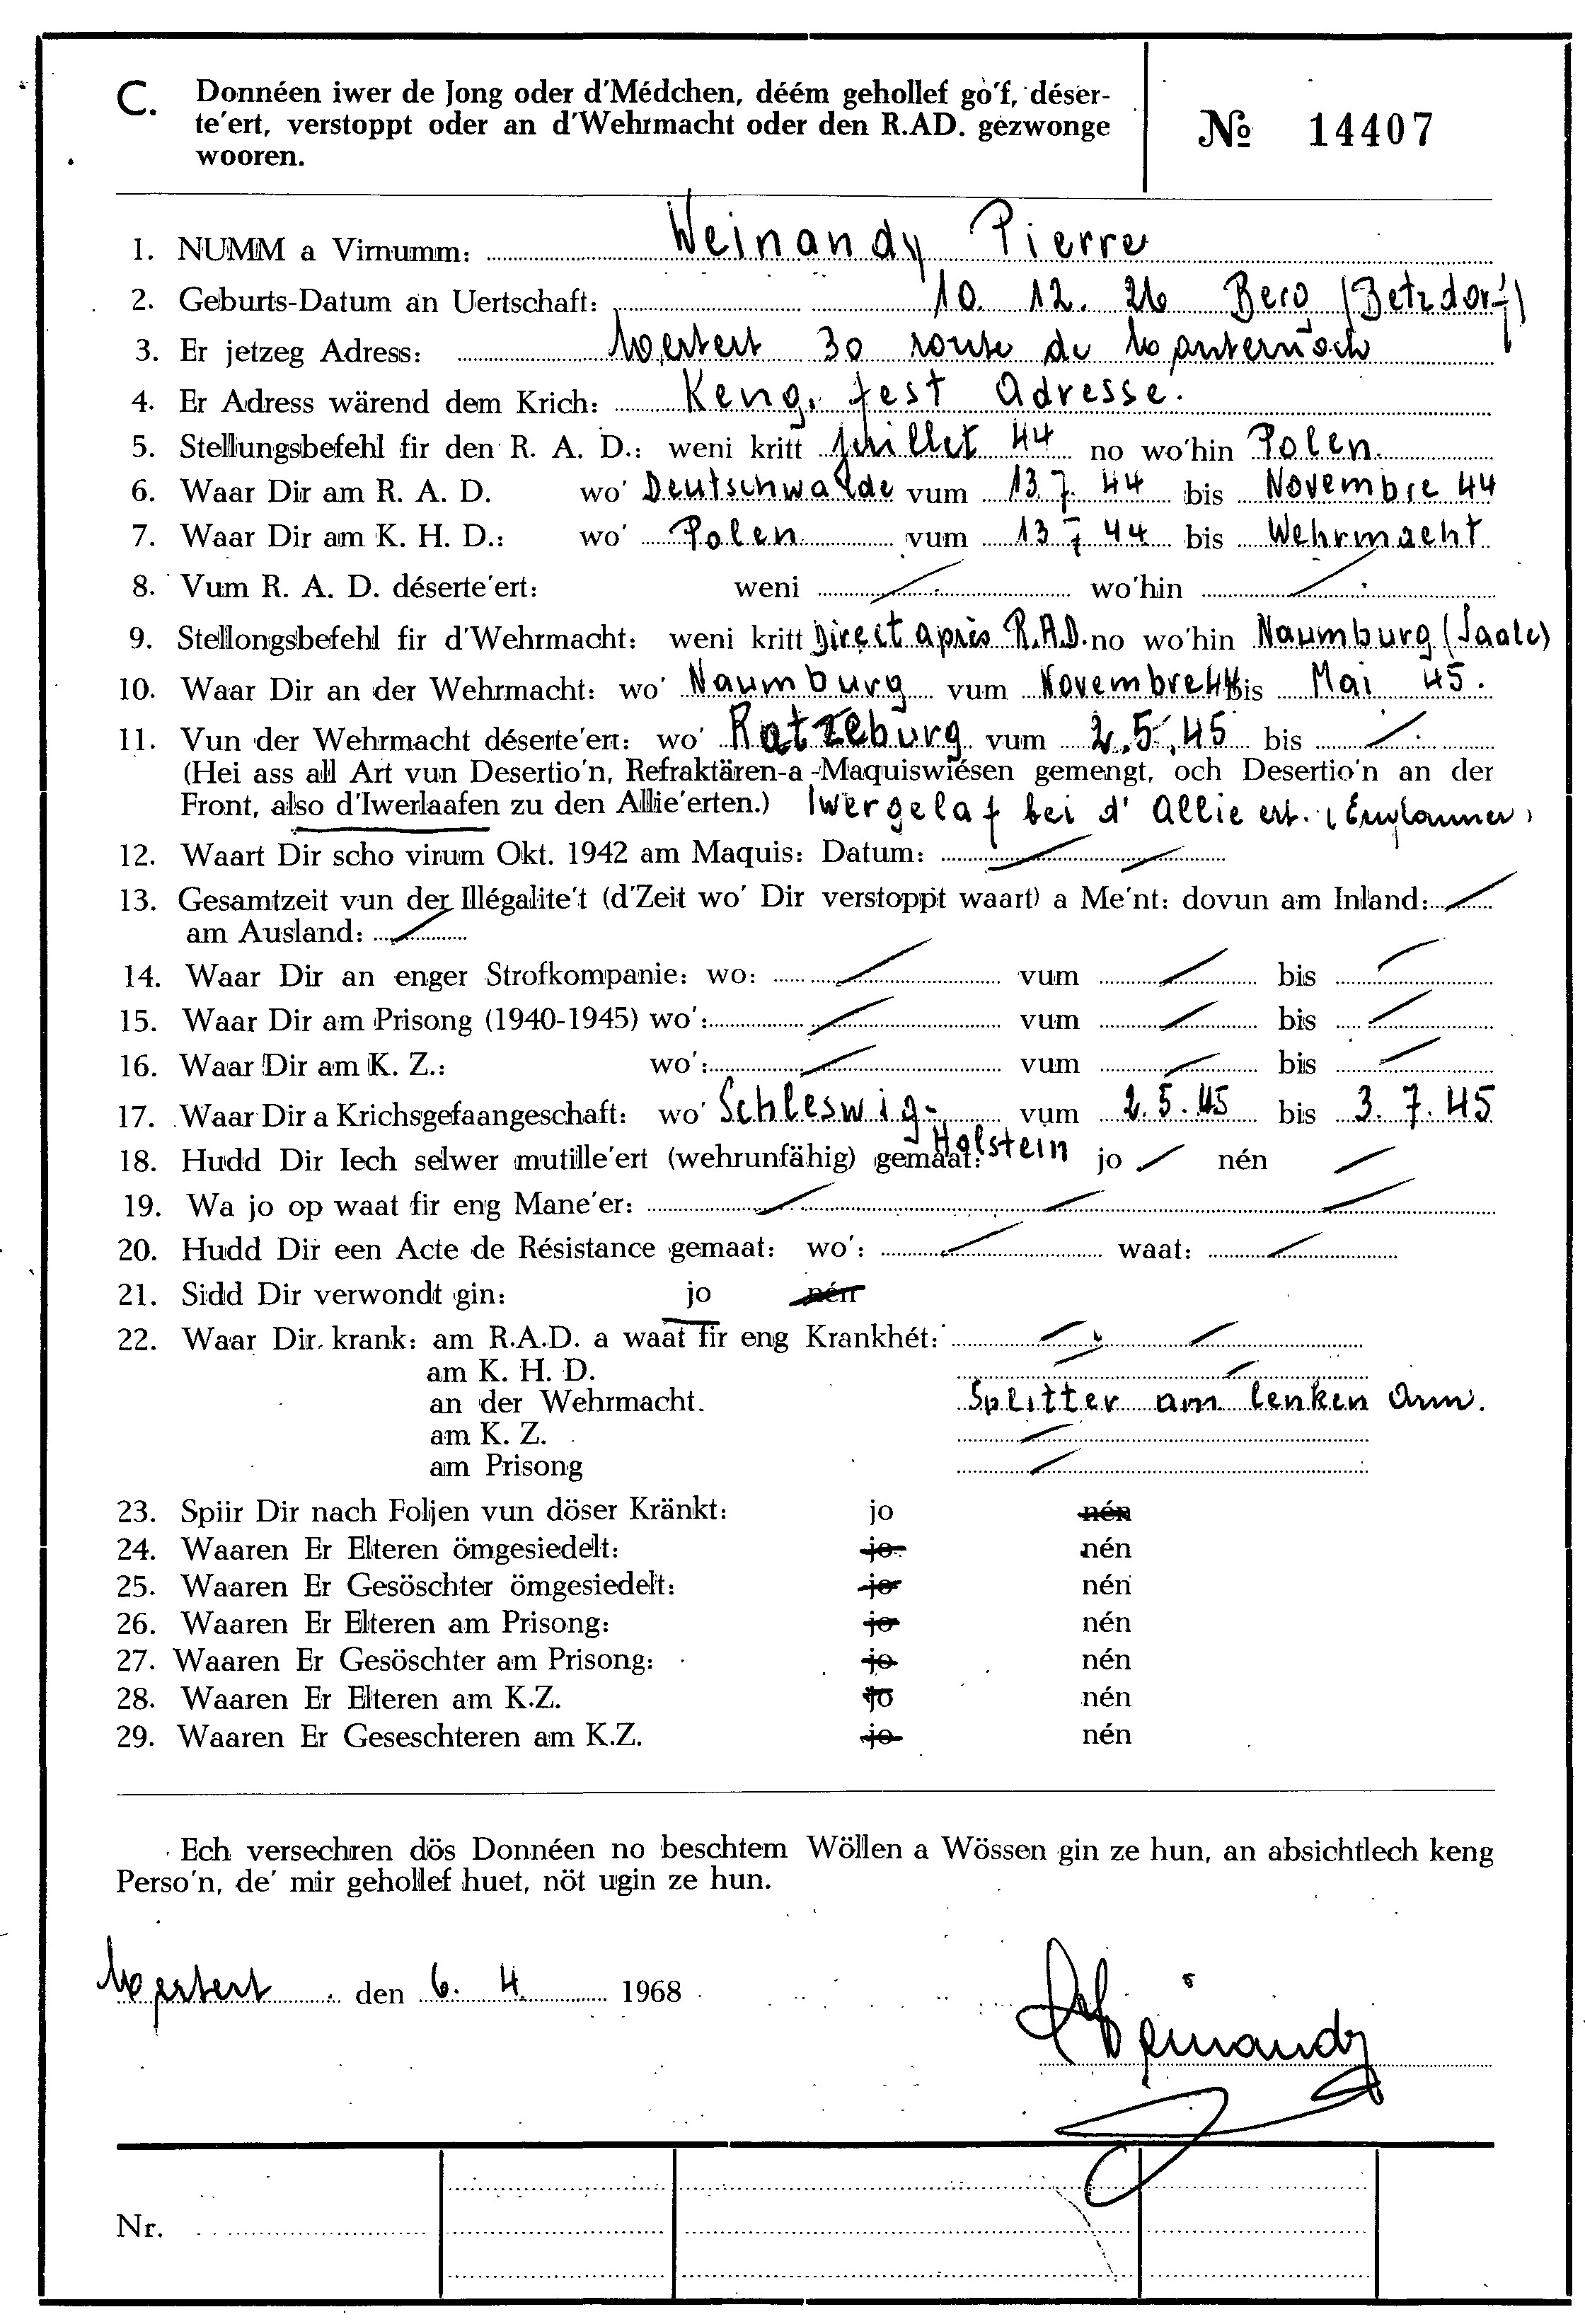 C. Donnéen iwer de Jong oder d'Médchen, déém gehollef go'f, déser-
te'ert, verstoppt oder an d'Wehrmacht oder den R.AD. gezwonge
wooren.
№ 14407
1. NUMM a Virnumm: Weinandy Pierre
2. Geburts-Datum an Uertschaft: 10. 12. 26 Berg (Betzdorf)
3. Er jetzeg Adress: 30 route de
4. Er Adress wärend dem Krich: Keng fest Adresse.
5. Stellungsbefehl fir den R. A. D.: weni kritt juillet 44 no wo'hin Polen
6. Waar Dir am R. A. D. wo' Deutschwalde vum 13.7. 44 bis Novembre 44
7. Waar Dir am K. H. D.: wo' Polen vum 13 7 44 bis Wehrmacht
8. Vum R. A. D. déserte'ert: weni / wo'hin /
9. Stellongsbefehl fir d'Wehrmacht: weni kritt Direct après R.A.D. no wo'hin Naumburg (Saale)
10. Waar Dir an der Wehrmacht: wo' Naumburg vum Novembre 44 bis Mai 45.
11. Vun der Wehrmacht déserte'ert: wo' Ratzeburg vum 2.5.45 bis /
(Hei ass all Art vun Desertio'n, Refraktären-a-Maquiswiésen gemengt, och Desertio'n an der
Front, also d'Iwerlaafen zu den Allie'erten.) Iwergelaf bei d'Allie ert. (Englänner)
12. Waart Dir scho virum Okt. 1942 am Maquis: Datum: / /
13. Gesamtzeit vun der Illégalite't (d'Zeit wo' Dir verstoppt waart) a Me'nt: dovun am Inland: /
am Ausland: /
14. Waar Dir an enger Strofkompanie: wo: / vum / bis /
15. Waar Dir am Prisong (1940-1945) wo': / vum / bis /
16. Waar Dir am K. Z.: wo': / vum / bis /
17. Waar Dir a Krichsgefaangeschaft: wo' Schleswig- vum 2.5.45 bis 3.7.45
Holstein
18. Hudd Dir Iech selwer mutille'ert (wehrunfähig) gemaat: jo / nén /
19. Wa jo op waat fir eng Mane'er: / / /
20. Hudd Dir een Acte de Résistance gemaat: wo': / waat: /
21. Sidd Dir verwondt gin: jo nén
22. Waar Dir krank: am R.A.D. a waat fir eng Krankhét: / /
am K. H. D. /
an der Wehrmacht. Splitter am lenken Arm.
am K. Z. /
am Prisong /
23. Spiir Dir nach Foljen vun döser Kränkt: jo nén
24. Waaren Er Elteren ömgesiedelt: jo nén
25. Waaren Er Gesöschter ömgesiedelt: jo nén
26. Waaren Er Elteren am Prisong: jo nén
27. Waaren Er Gesöschter am Prisong: jo nén
28. Waaren Er Elteren am K.Z. jo nén
29. Waaren Er Geseschteren am K.Z. jo nén
Ech versechren dös Donnéen no beschtem Wöllen a Wössen gin ze hun, an absichtlech keng
Perso'n, de' mir gehollef huet, nöt ugin ze hun.
den 6. 4. 1968
Weinandy
Nr.